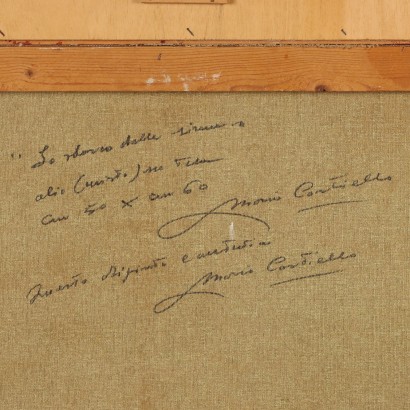 " Lo sbarco delle sirene"
olio (misto) su tela
cm 50 x cm 60
Mario Cortiello
Questo dipinto è autentico
Mario Cortiello